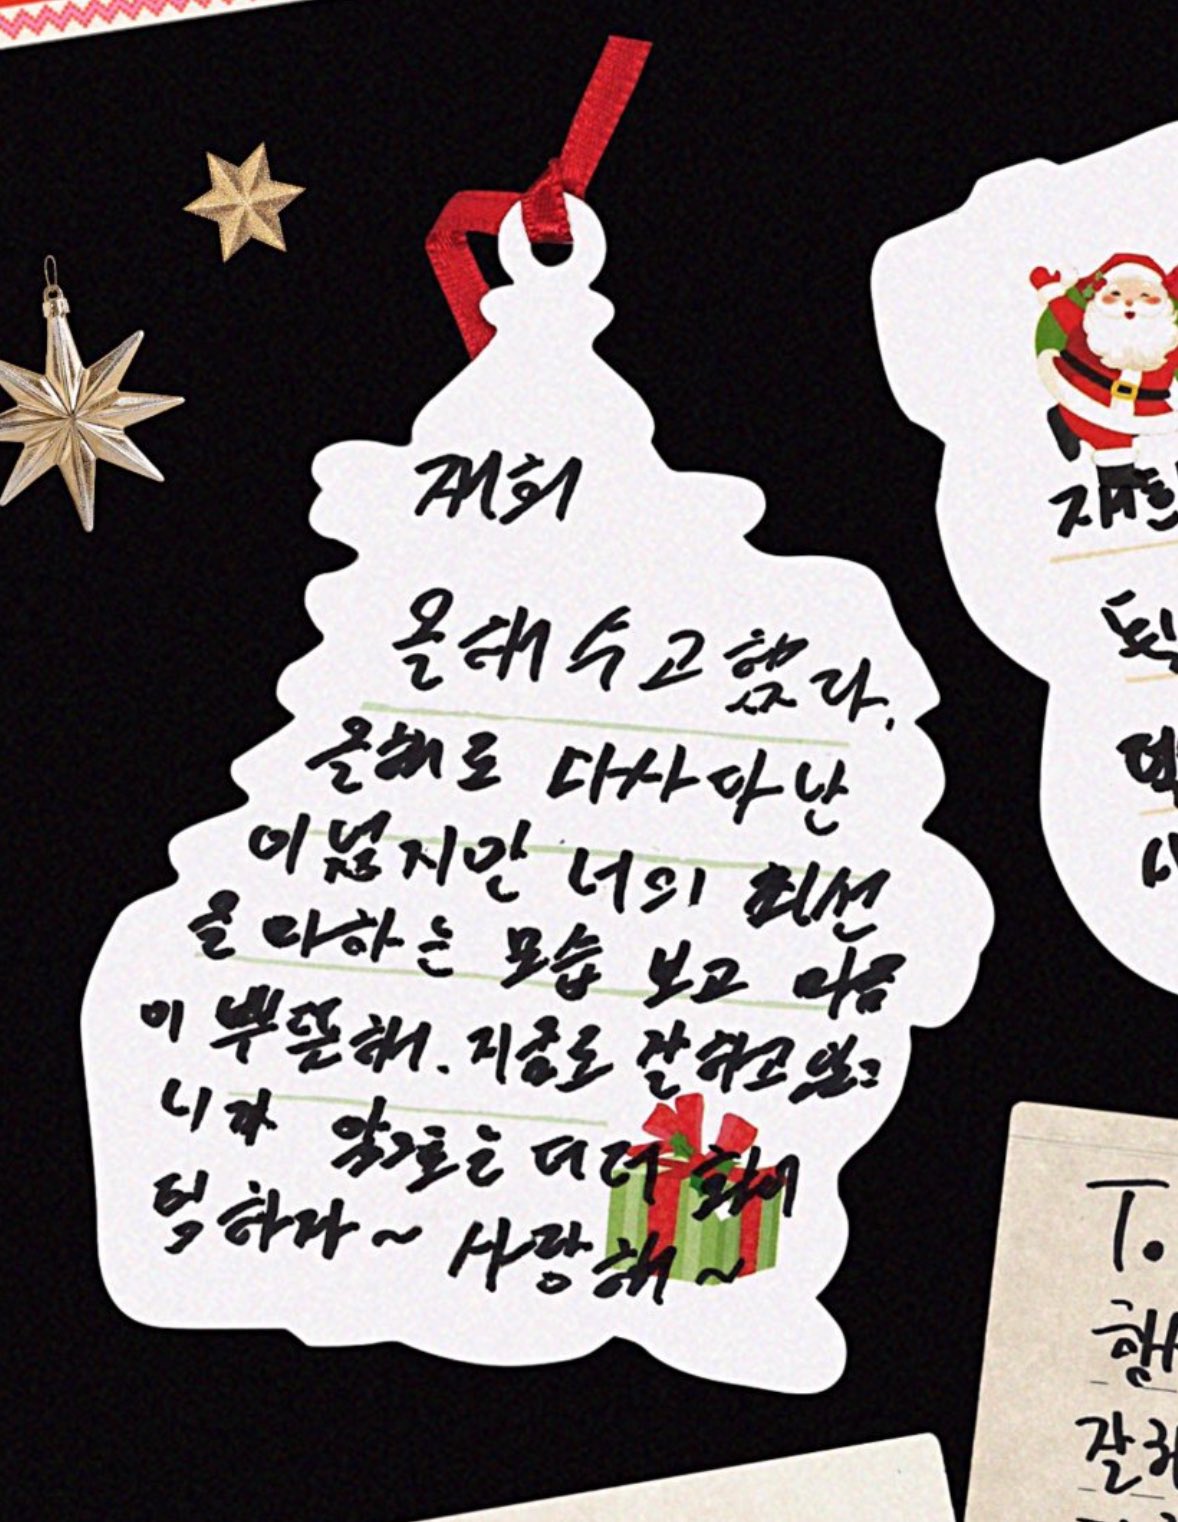 재희
올해 수고했다.
올해도 다사다난
이었지만 너의 최선
을 다하는 모습 보고 마음
이 뿌듯해. 지금도 잘하고 있으
니까 앞으로는 더더 화이
팅하자~ 사랑해~
재
T.
잘